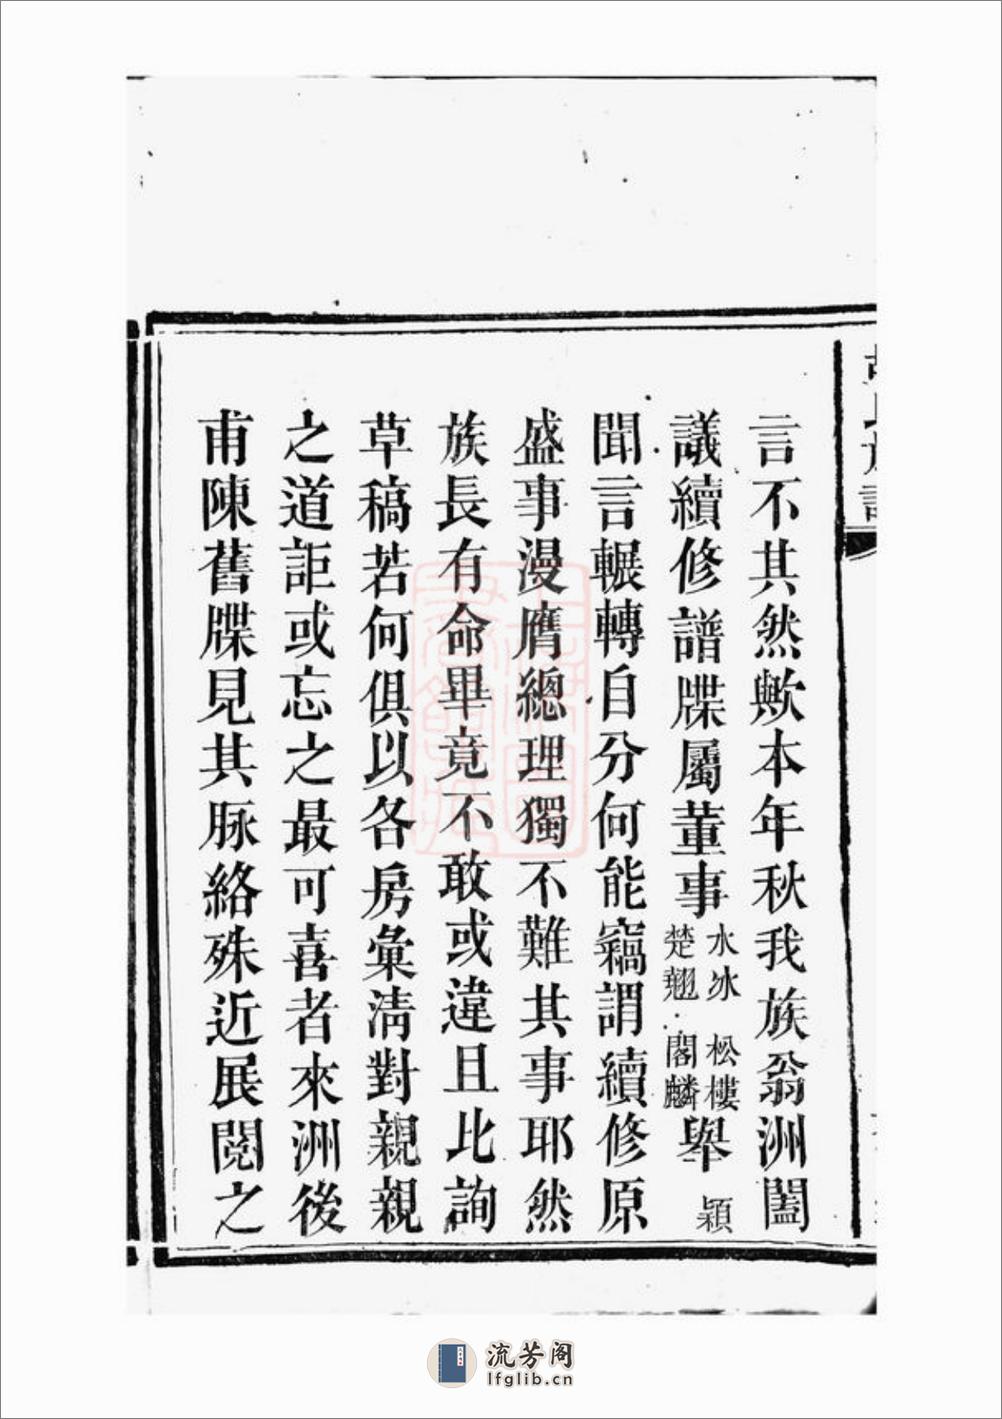 言不其然歟本年秋我族翁洲闔
議續修譜牒屬董事水冰松樓楚翹閣麟舉穎
聞言輾轉自分何能竊謂續修原
盛事漫膺總理獨不難其事耶然
族長有命畢竟不敢或違且比詢
草稿若何俱以各房彙清對親親
之道詎或忘之最可喜者來洲後
甫陳舊牒見其脉絡殊近展閱之
流芳阁
lfglib.cn